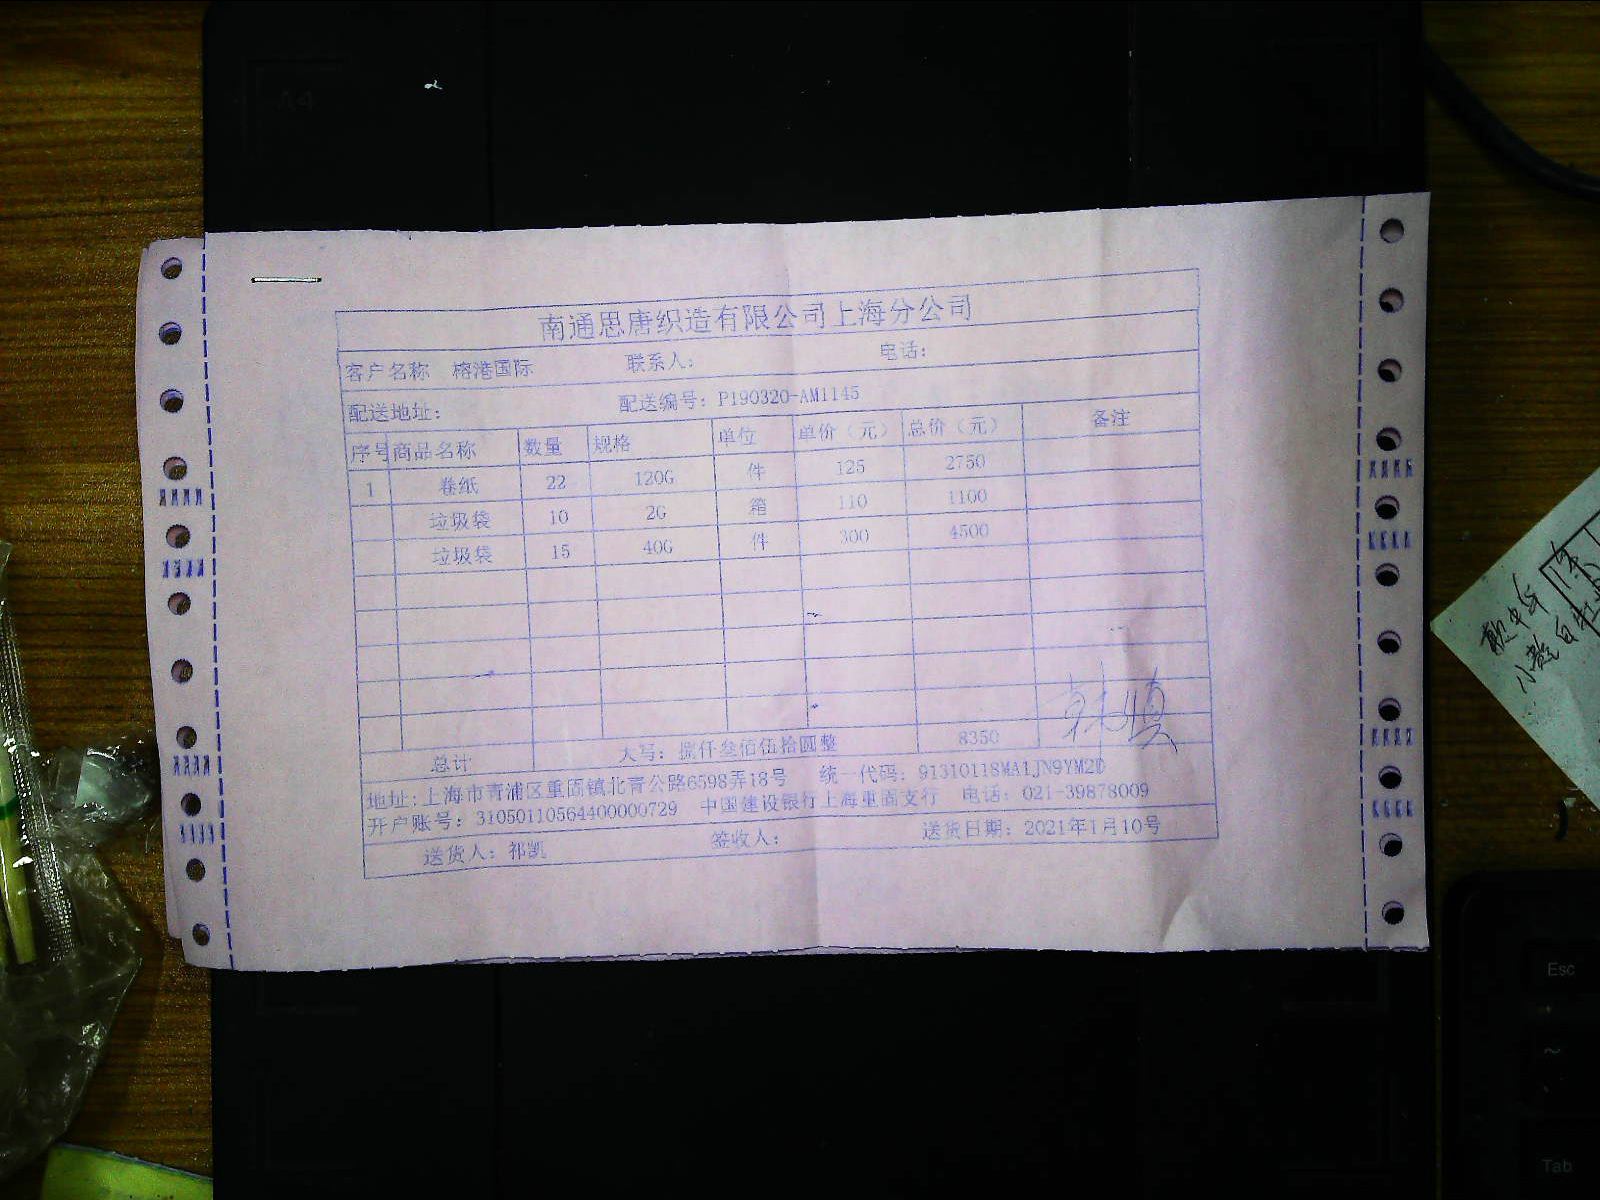 A4
南通思唐织造有限公司上海分公司
客户名称 榕港国际 联系人: 电话:
配送地址: 配送编号: P190320-AM1145
序号 商品名称 数量 规格 单位 单价(元) 总价(元) 备注
1 卷纸 22 120G 件 125 2750
垃圾袋 10 2G 箱 110 1100
垃圾袋 15 40G 件 300 4500
总计 大写: 捌仟叁佰伍拾圆整 8350
地址:上海市青浦区重固镇北青公路6598弄18号 统一代码: 91310118MA1JN9YM2D
开户账号: 31050110564400000729 中国建设银行上海重固支行 电话: 021-39878009
送货人: 祁凯 签收人: 送货日期: 2021年1月10号
Esc
~
Tab